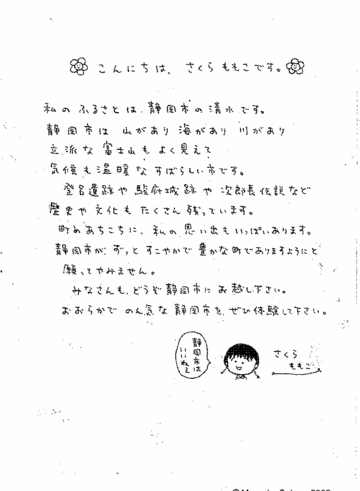 こんにちは、さくらももこです。
私のふるさとは、静岡市の清水です。
静岡市は 山があり 海があり 川があり
立派な 富士山も よく見えて
気候も温暖な すばらしい市です。
登呂遺跡や 駿府城跡や 次郎長伝説など
歴史や文化も たくさん残っています。
町のあちこちに、私の思い出もいっぱいあります。
静岡市が、ずっと すこやかで 豊かな町でありますようにと
願ってやみません。
みなさんも、どうぞ静岡市に お越し下さい。
おおらかで のん気な 静岡市を、ぜひ体験して下さい。
静岡市は
いいねぇ
さくら
ももこ